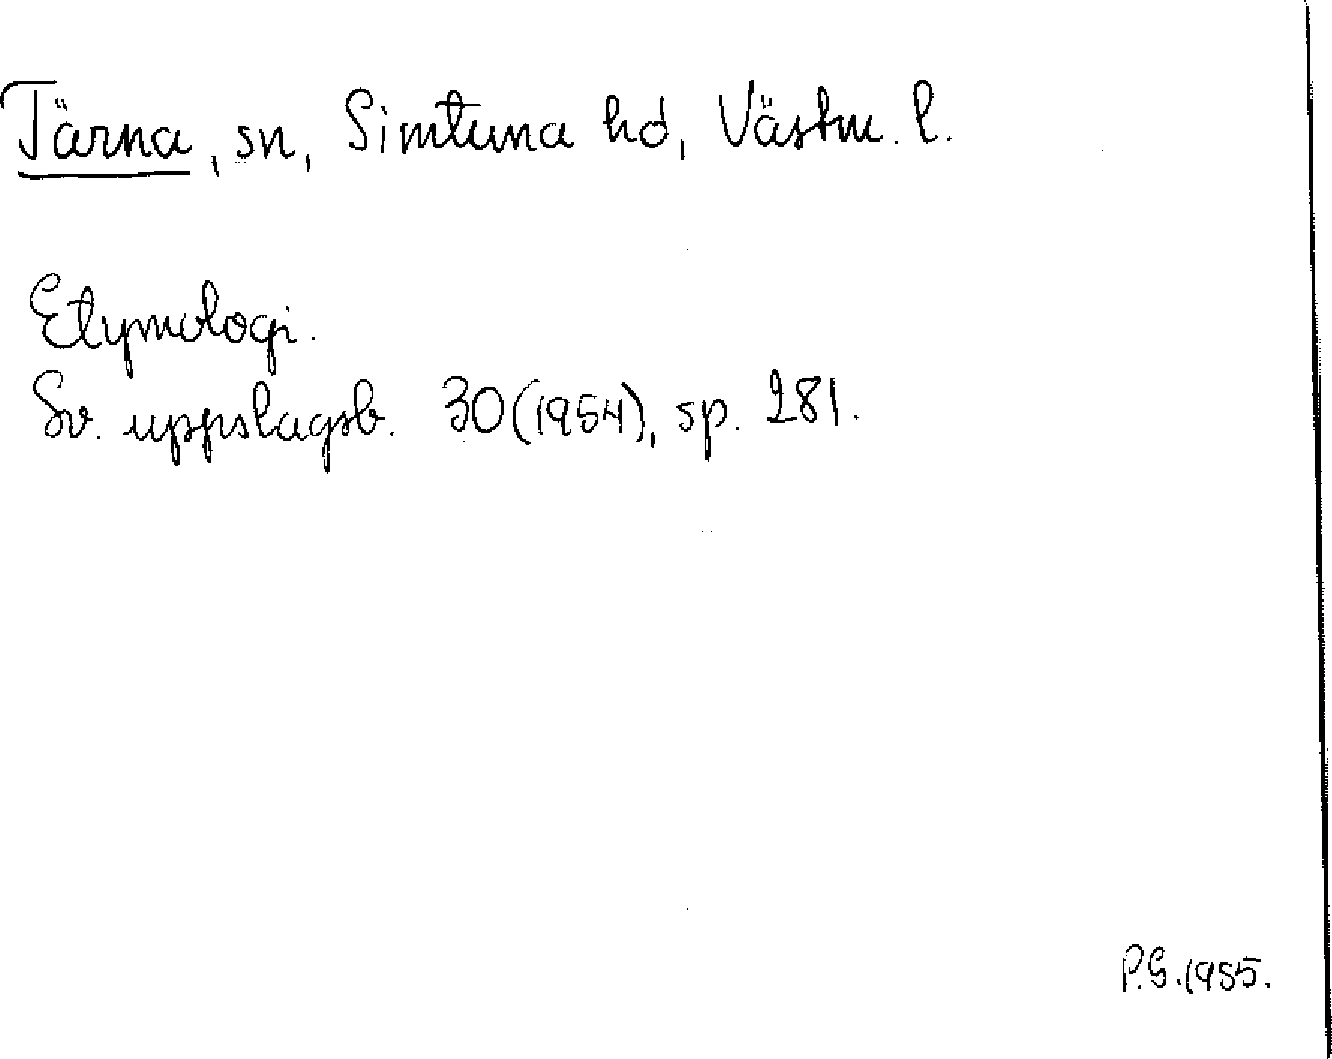 Tärna, sn, Simtuna hd, Västm. l.
Etymologi.
Sv. uppslagsb. 30(1954), sp. 281.
P.G.1955.